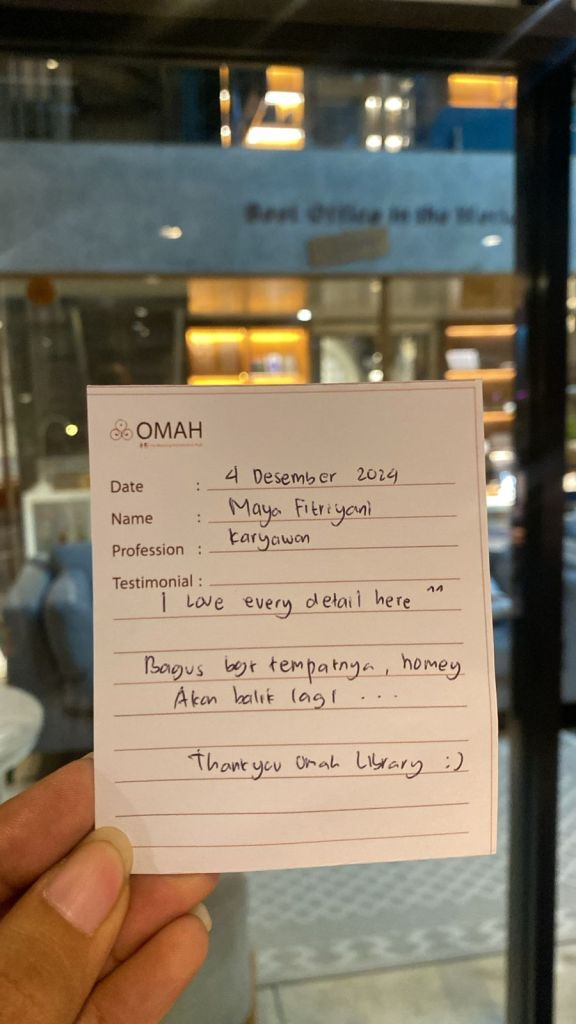 Best Office in the World
OMAH
Date : 4 Desember 2024
Name : Maya Fitriyani
Profession : Karyawan
Testimonial :
I Love every detail here ^^
Bagus bgt tempatnya, homey
Akan balik lagi ...
Thankyou Omah Library :)